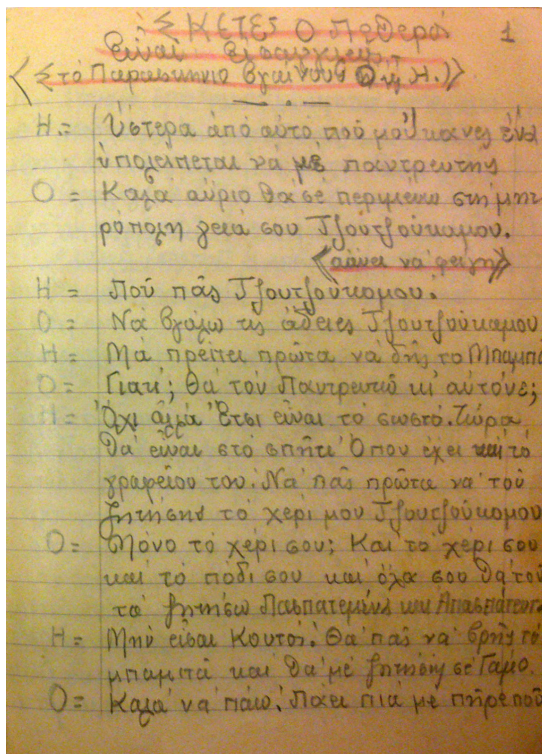 ΣΚΕΤΣ Ο Πεθερός 1
Είναι Εισαγγελεύς
(Στό Παρασκήνιο βγαίνουν Ο ἡ Η.)
Η = Ὕστερα ἀπό αὐτό πού μοὔκανες ἕνα
ὑπολείπεται νά μέ παντρευτης
Ο = Καλά αὔριο θά σέ περιμένω στή μητ
ρόπολη γειά σου Τζουτζούκομου.
(κάνει νά φείγη)
Η = Πού πᾶς Τζουτζούκομου.
Ο = Νά βγάλω τις ἄδειες Τζουτζούκομου
Η = Μά πρέπει πρῶτα νά δῆς το Μπαμπά
Ο = Γιατί; θά τόν Παντρευτῶ κι' αὐτόνε;
Η = Ὄχι ἀλλά Ἔτσι εἶναι τό σωστό. Τώρα
θά εἶναι στό σπήτι Ὁπου ἔχει καί τό
γραφεῖον του. Νά πᾶς πρῶτα νά τοῦ
ζητήσης τό χέρι μου Τζουτζούκομου
Ο = Μόνο τό χέρι σου; Καί τό χέρι σου
καί τό πόδι σου καί ὅλα σου θά τοῦ
τά ζητήσω
Η = Μήν εἶσαι Κουτός. Θά πᾶς νά βρῆς τό
μπαμπά καί θά μέ ζητήσης σέ Γάμο.
Ο = Καλά νά πάω. Πάει πιά με πῆρε ποῦ